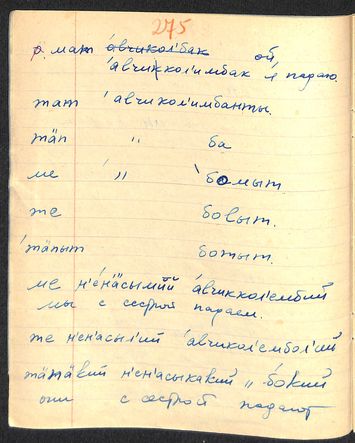 275
р. мат а́вчикол'бак ой,
а́вчиккол'имбак я падаю.
тат а́вчикол'имбанты.
тäп " ба
ме " бомыт
те бовыт.
тäпыт ботыт.
ме н'е́нäсымий а́вчиккол'ембий
мы с сестрой падаем.
те н'ен'асыл'ий а́вчикол'ембол'ий
тäтäкий н'ен'асыкакий " бокий
они с сестрой падают